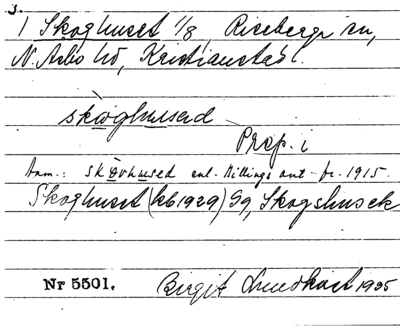 3.
1 Skoghuset 1/8, Riseberga sn,
N. Åsbo hd, Kristianstads l.
skoghusəd
Prep. i
Anm.: skovhused enl. Billings ant. fr. 1915.
Skoghuset (kb 1929) Gg, Skogshusek
Nr 5501.
Birgit Lundkvist 1935